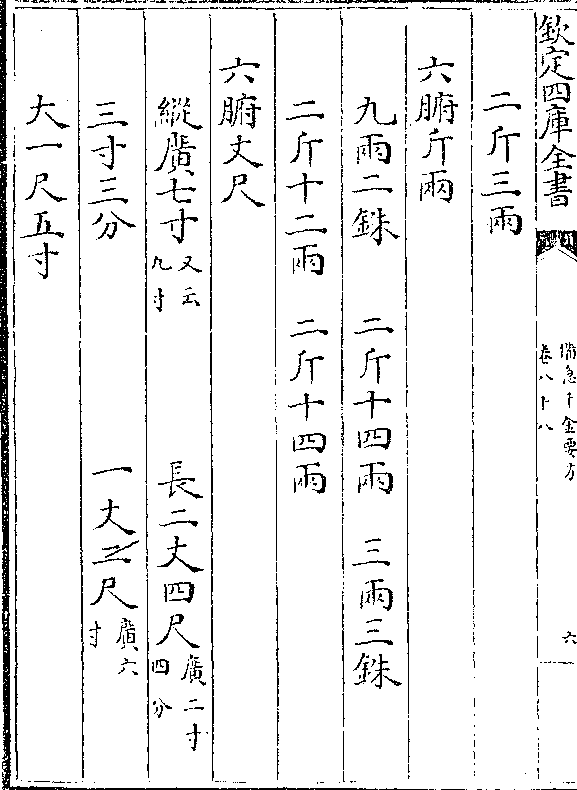 欽定四庫全書
備急千金要方
卷八十八
六
二斤三兩
六腑斤兩
九兩二銖　二斤十四兩　三兩三銖
二斤十二兩　二斤十四兩
六腑丈尺
縱廣七寸又云九寸　長二丈四尺廣二寸四分
三寸三分　一丈二尺廣六寸
大一尺五寸